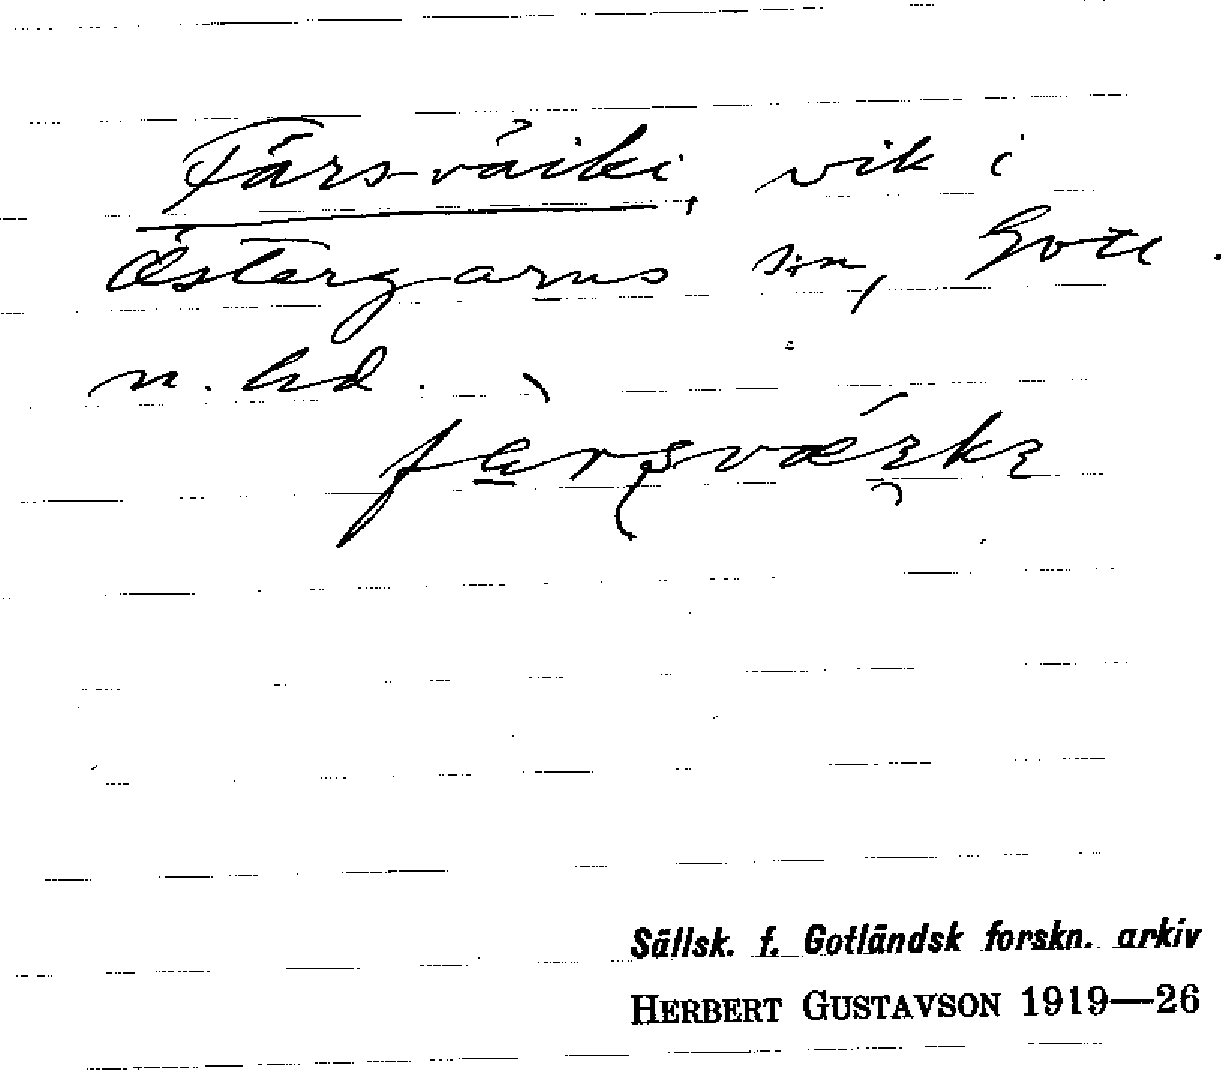 Färs-väiki, vik i
Östergarns sn, Gotl.
n. hd.
Sällsk. f. Gotländsk forskn. arkiv
HERBERT GUSTAVSON 1919—26